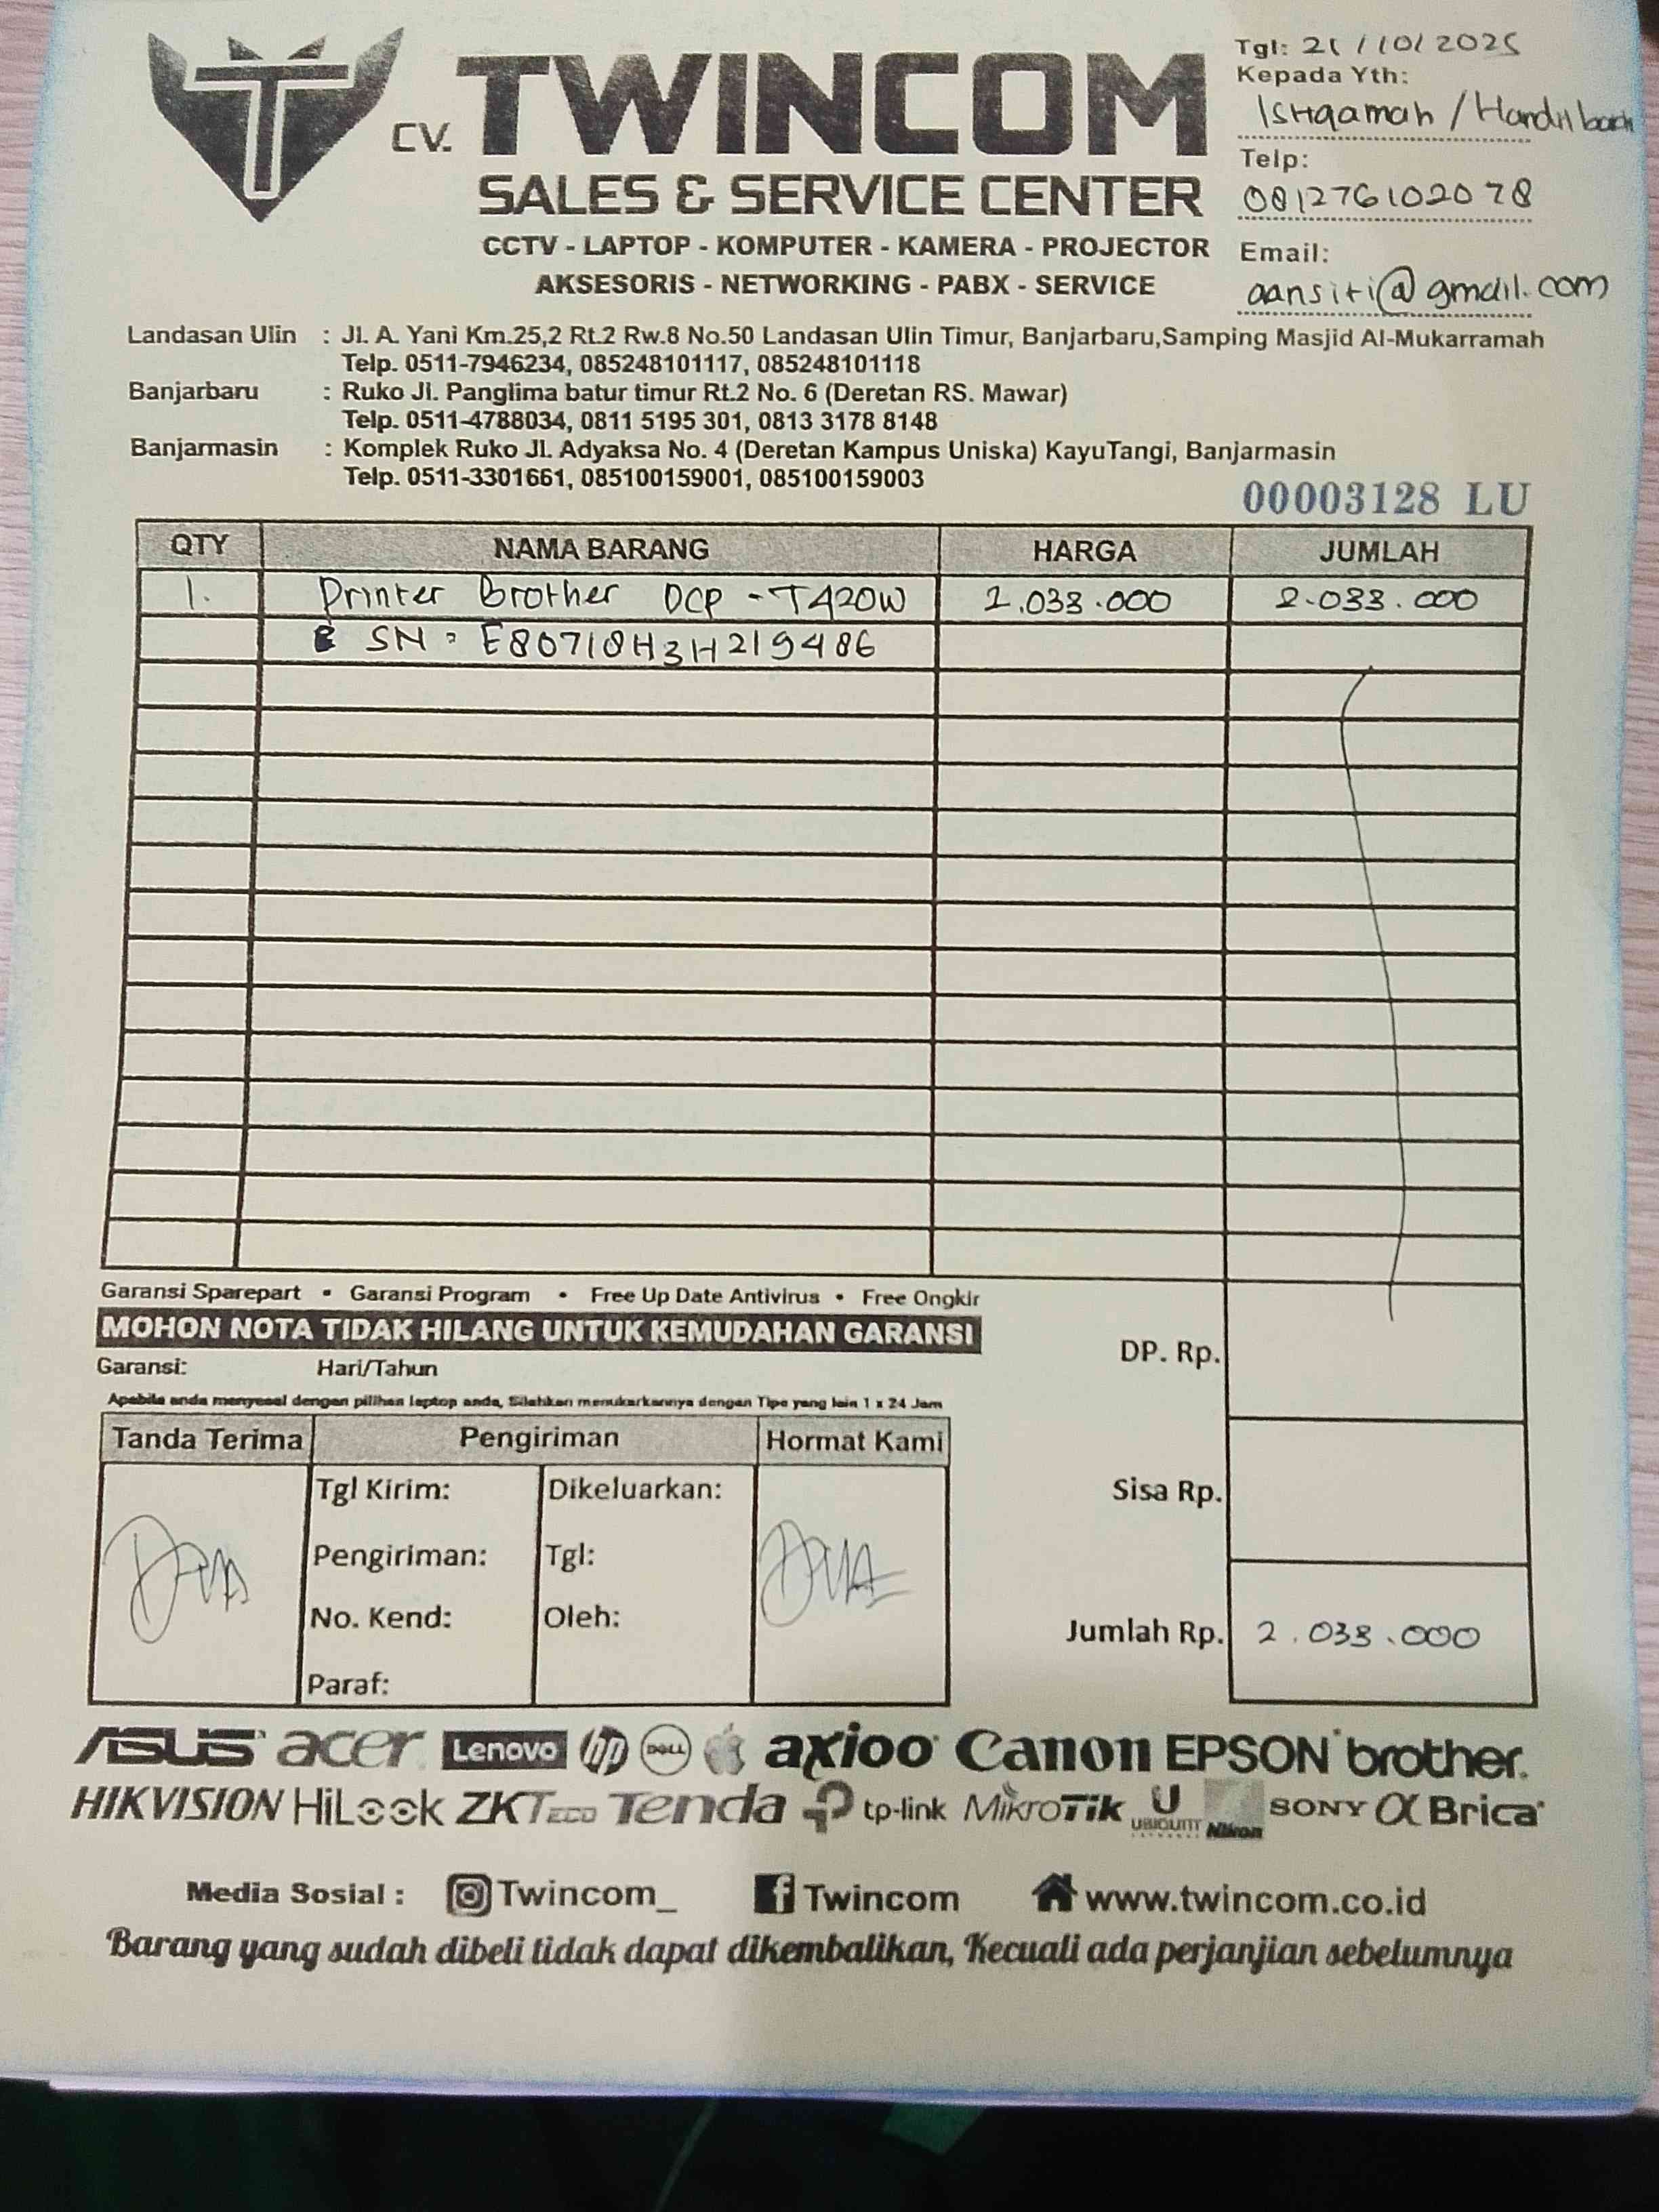 CV. TWINCOM
SALES & SERVICE CENTER
CCTV - LAPTOP - KOMPUTER - KAMERA - PROJECTOR
AKSESORIS - NETWORKING - PABX - SERVICE
Tgl: 21/10/2025
Kepada Yth:
Istiqamah /
Telp:
081276102078
Email:
aansiti@gmail.com
Landasan Ulin : Jl. A. Yani Km.25,2 Rt.2 Rw.8 No.50 Landasan Ulin Timur, Banjarbaru,Samping Masjid Al-Mukarramah
Telp. 0511-7946234, 085248101117, 085248101118
Banjarbaru : Ruko Jl. Panglima batur timur Rt.2 No. 6 (Deretan RS. Mawar)
Telp. 0511-4788034, 0811 5195 301, 0813 3178 8148
Banjarmasin : Komplek Ruko Jl. Adyaksa No. 4 (Deretan Kampus Uniska) KayuTangi, Banjarmasin
Telp. 0511-3301661, 085100159001, 085100159003
00003128 LU
QTY NAMA BARANG HARGA JUMLAH
1. Printer Brother DCP - T420W 2.033.000 2.033.000
SN : E80718H3H219486
Garansi Sparepart • Garansi Program • Free Up Date Antivirus • Free Ongkir
MOHON NOTA TIDAK HILANG UNTUK KEMUDAHAN GARANSI
Garansi: Hari/Tahun
Apabila anda menyesal dengan pilihan laptop anda, Silahkan menukarkannya dengan Tipe yang lain 1 x 24 Jam
DP. Rp.
Sisa Rp.
Jumlah Rp. 2.033.000
Tanda Terima Pengiriman Hormat Kami
Tgl Kirim: Dikeluarkan:
Pengiriman: Tgl:
No. Kend: Oleh:
Paraf:
ASUS acer Lenovo hp DELL axioo Canon EPSON brother
HIKVISION HiLook ZKTECO Tenda tp-link MikroTik U UBIQUITI Nikon SONY α Brica
Media Sosial : Twincom_ Twincom www.twincom.co.id
Barang yang sudah dibeli tidak dapat dikembalikan, Kecuali ada perjanjian sebelumnya